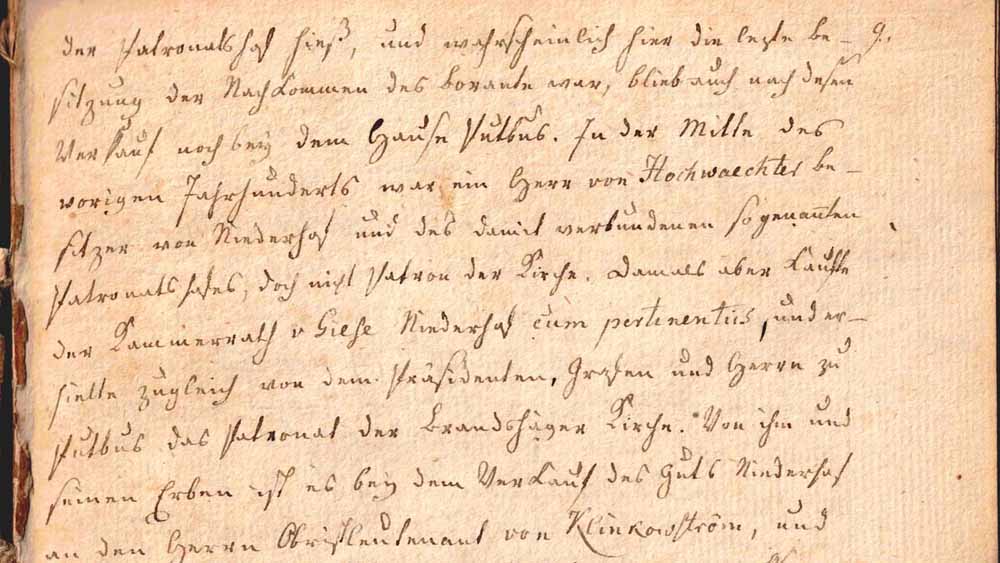 der Patronatshof hieß, und wahrscheinlich hier die lezte be- 9.
sitzung der Nachkommen des Borante war, blieb auch nach desen
Verkauf noch bey dem Hause Putbus. In der Mitte des
vorigen Jahrhunderts war ein Herr von Hochwaechter be-
sitzer von Niederhof und des damit verbundenen sogenannten
Patronatshofes, doch nicht Patron der Kirche. Damals aber kaufte
der Kammerrath v Giese Niederhof cum pertinentiis, und er-
hielte zugleich von dem Präsidenten, Grafen und Herrn zu
Putbus das Patronat der Brandshäger Kirche. Von ihm und
seinen Erben ist es bey dem Verkauf des Guts Niederhof
an den Herrn Obristleutenant von Klinkowström, und